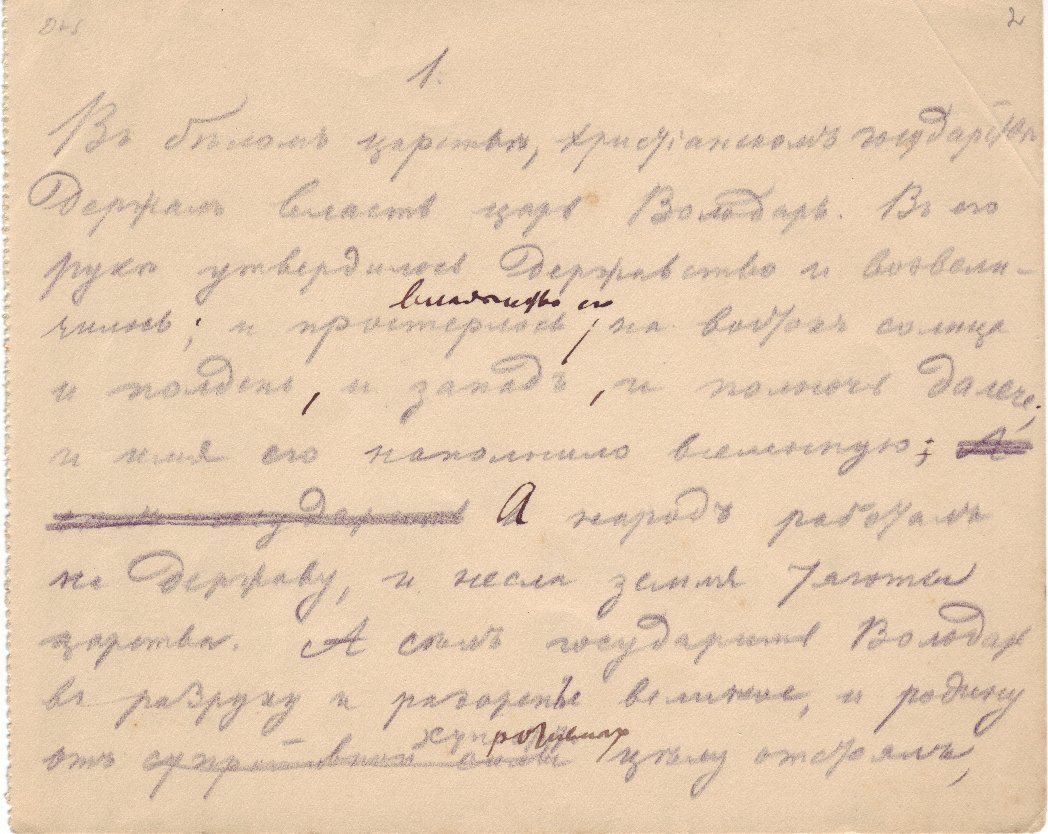 2
1.
Въ бѣломъ царствѣ, христіанскомъ государствѣ
Держалъ власть царь Володарь. Въ его
рукѣ утвердилось Державство и возвели-
владычество его
чилось; и простерлось, на востокъ солнца
и полдень, и западъ, и полночь далече;
и имя его наполнило вселенную; А
государь А народъ работалъ
на Державу, и несла земля тяготы
царства. А сѣлъ государить Володарь
въ разруху и разоренье великое, и родину
отъ супротивной силы цѣлу отстоялъ,